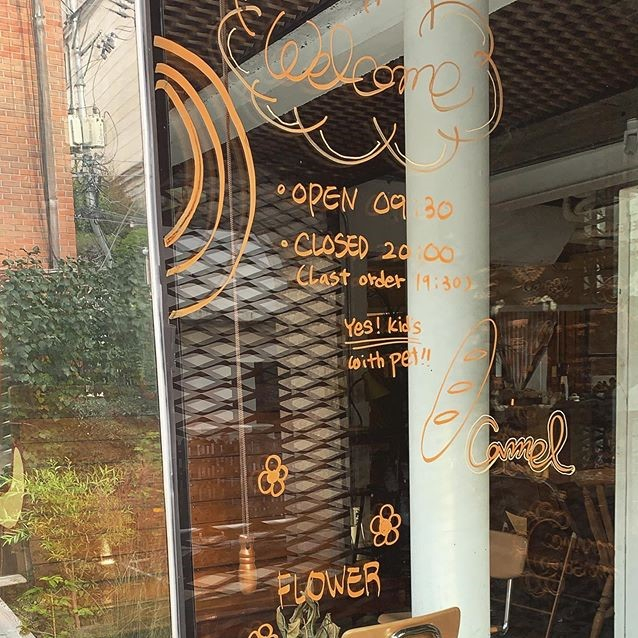 Welcome
• OPEN 09:30
• CLOSED 20:00
(Last order 19:30)
Yes! kids
with pet!!
Camel
FLOWER